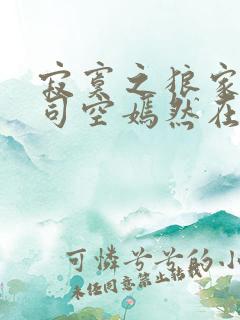 寂寞之狼家
司空嫣然在
可憐兮兮的小
未经同意禁止转载